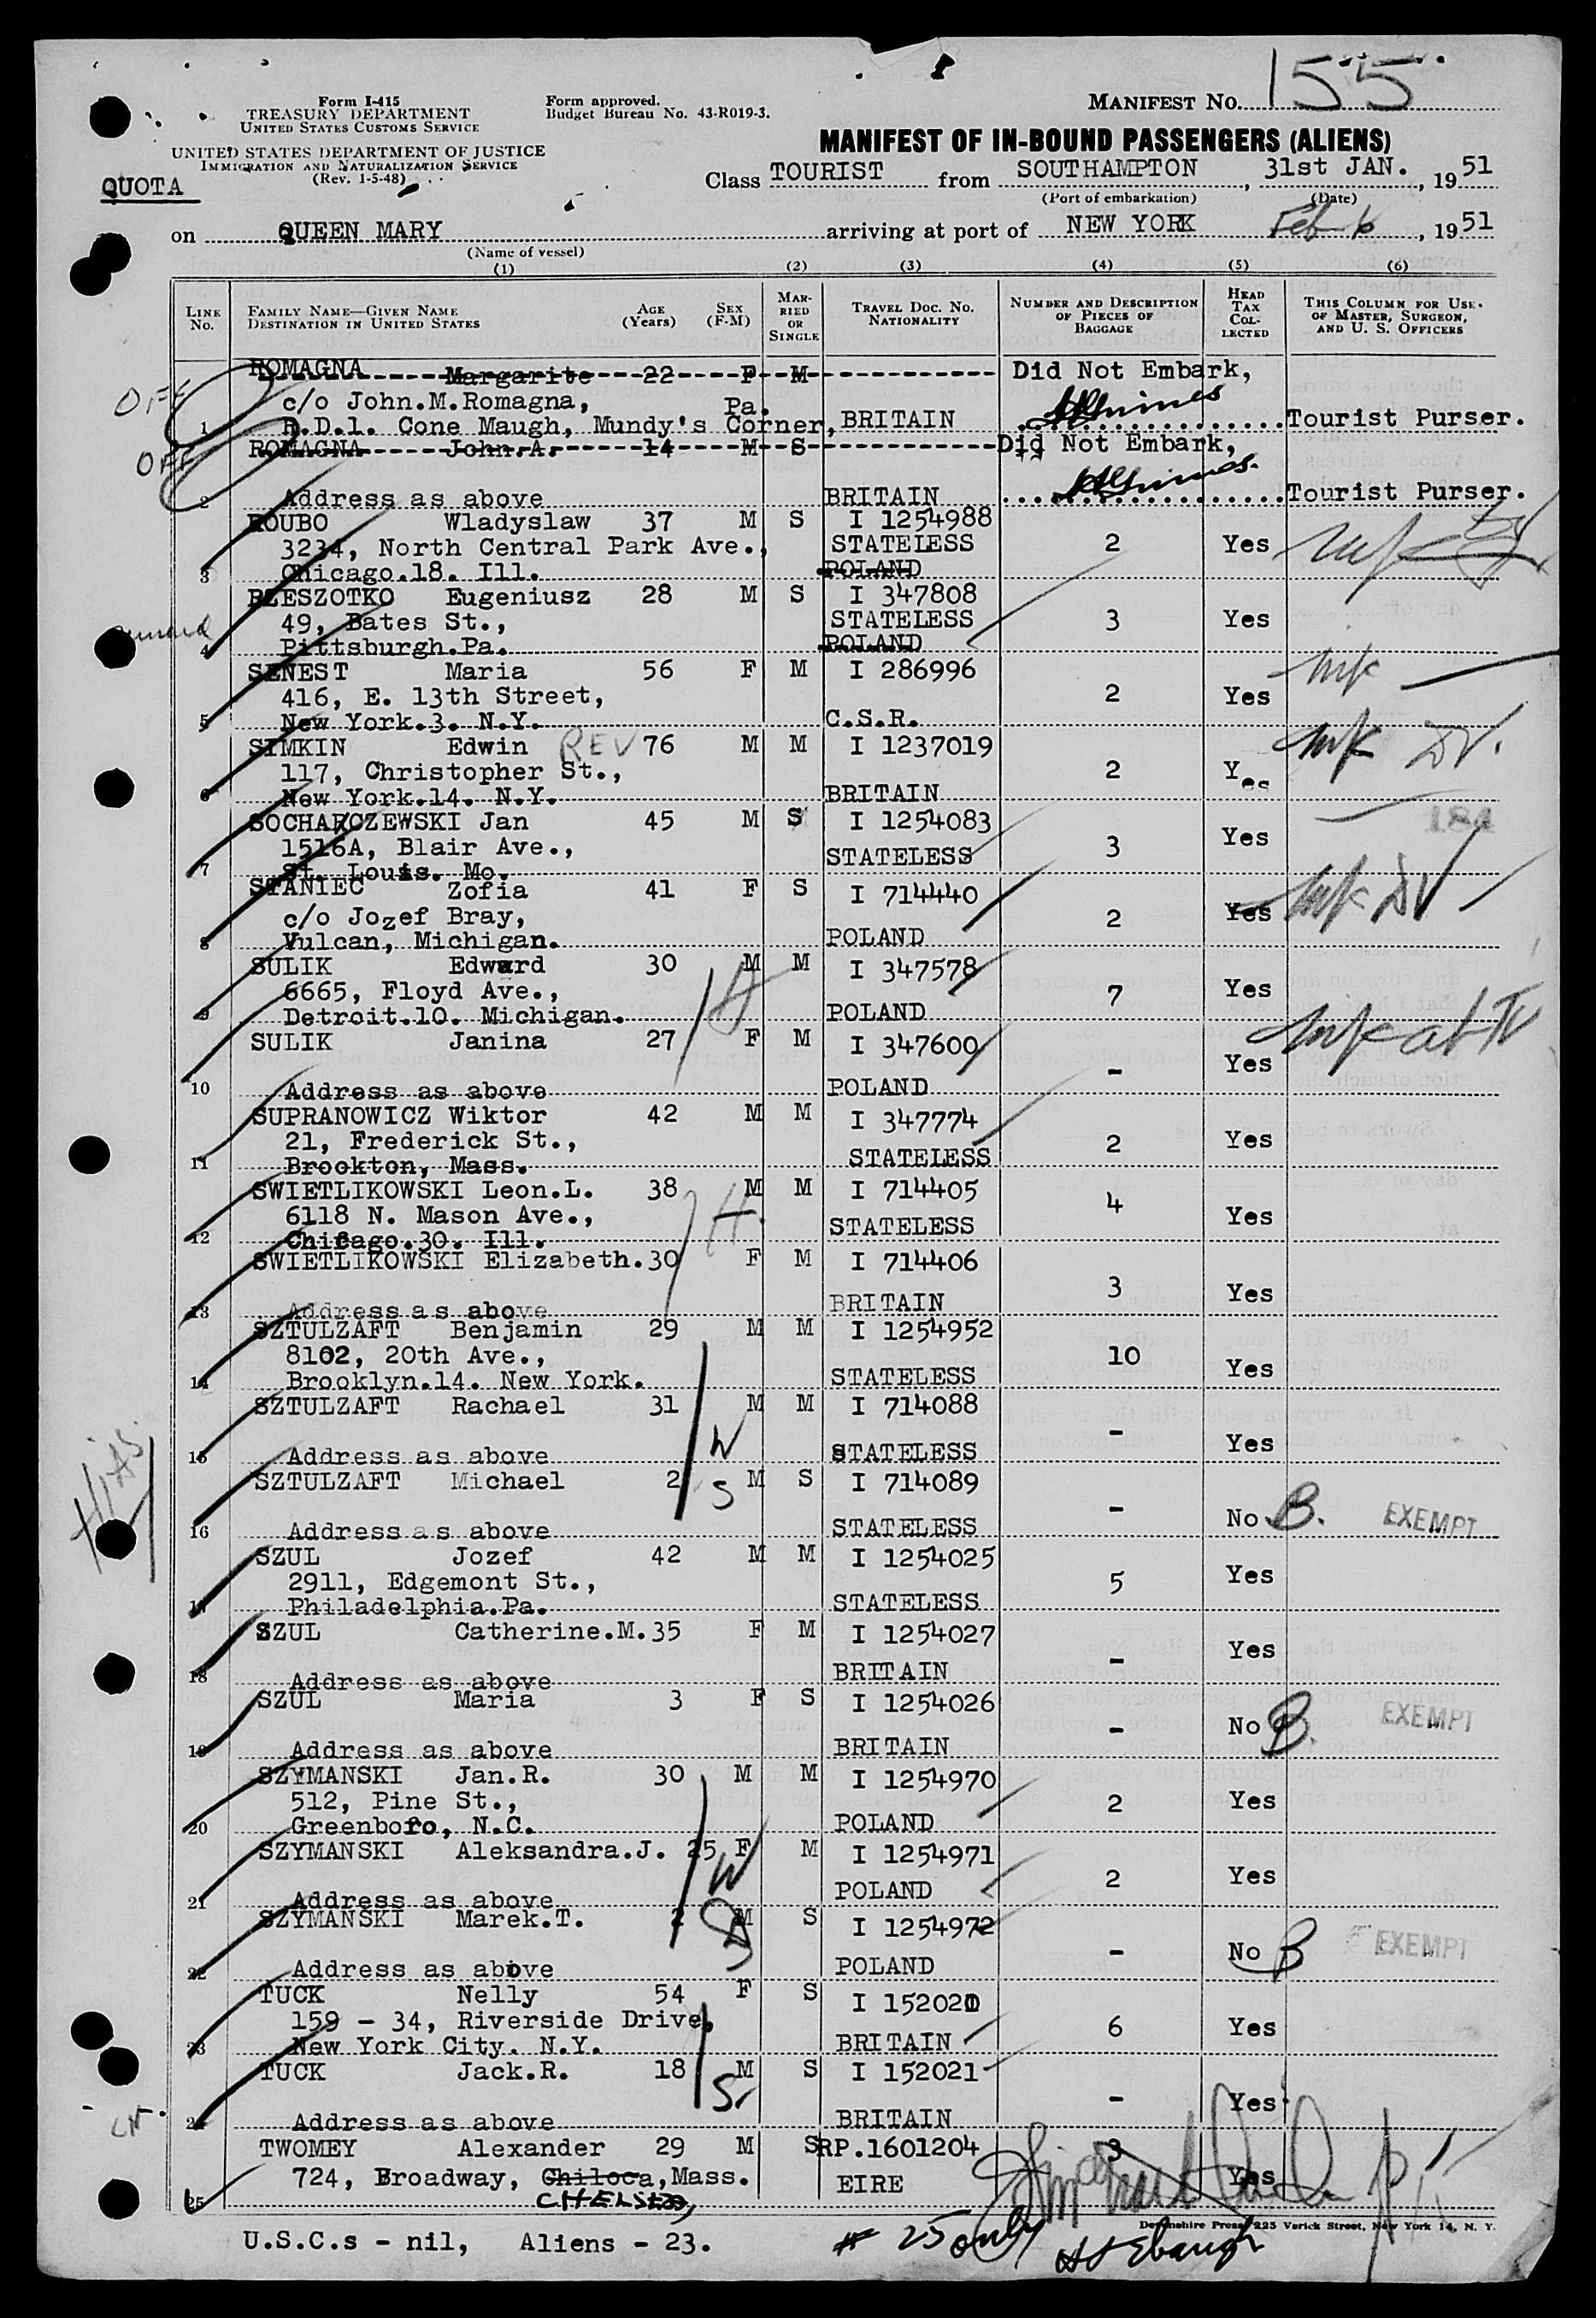 MANIFEST NO. 155
Form I-415
TREASURY DEPARTMENT
UNITED STATES CUSTOMS SERVICE
Form approved.
Budget Bureau No. 43-R019-3.
UNITED STATES DEPARTMENT OF JUSTICE
IMMIGRATION AND NATURALIZATION SERVICE
(Rev. 1-5-48)
QUOTA
MANIFEST OF IN-BOUND PASSENGERS (ALIENS)
Class TOURIST from SOUTHAMPTON, 31st JAN., 1951
(Port of embarkation) (Date)
on QUEEN MARY arriving at port of NEW YORK Feb 6, 1951
(Name of vessel)
(1) (2) (3) (4) (5) (6)
LINE No. FAMILY NAME—GIVEN NAME DESTINATION IN UNITED STATES AGE (Years) SEX (F-M) MARRIED OR SINGLE TRAVEL DOC. NO. NATIONALITY NUMBER AND DESCRIPTION OF PIECES OF BAGGAGE HEAD TAX COLLECTED THIS COLUMN FOR USE OF MASTER, SURGEON, AND U. S. OFFICERS
OFF ROMAGNA Margarite 22 F M Did Not Embark,
c/o John.M.Romagna, Pa.
1 R.D.1. Cone Maugh, Mundy's Corner, BRITAIN Tourist Purser.
OFF ROMAGNA John.A. 14 M S Did Not Embark,
2 Address as above BRITAIN Tourist Purser.
ROUBO Wladyslaw 37 M S I 1254988
3234, North Central Park Ave., STATELESS 2 Yes
3 Chicago.18. Ill. POLAND
RZESZOTKO Eugeniusz 28 M S I 347808
49, Bates St., STATELESS 3 Yes
4 Pittsburgh.Pa. POLAND
SENEST Maria 56 F M I 286996
416, E. 13th Street, 2 Yes
5 New York.3. N.Y. C.S.R.
SIMKIN Edwin REV 76 M M I 1237019
117, Christopher St., 2 Yes
6 New York.14. N.Y. BRITAIN
SOCHARCZEWSKI Jan 45 M S I 1254083 184
1516A, Blair Ave., STATELESS 3 Yes
7 St. Louis. Mo.
STANIEC Zofia 41 F S I 714440
c/o Jozef Bray, 2 Yes
8 Vulcan, Michigan. POLAND
SULIK Edward 30 M M I 347578
6665, Floyd Ave., 7 Yes
9 Detroit.10. Michigan. POLAND
SULIK Janina 27 F M I 347600
- Yes
10 Address as above POLAND
SUPRANOWICZ Wiktor 42 M M I 347774
21, Frederick St., 2 Yes
11 Brockton, Mass. STATELESS
SWIETLIKOWSKI Leon.L. 38 M M I 714405
6118 N. Mason Ave., STATELESS 4 Yes
12 Chicago.30. Ill. H.
SWIETLIKOWSKI Elizabeth. 30 F M I 714406
3 Yes
13 Address as above BRITAIN
SZTULZAFT Benjamin 29 M M I 1254952
8102, 20th Ave., 10 Yes
14 Brooklyn.14. New York. STATELESS
SZTULZAFT Rachael 31 M M I 714088
W - Yes
15 Address as above STATELESS
HIAS
SZTULZAFT Michael 2 M S I 714089
S - No B. EXEMPT
16 Address as above STATELESS
SZUL Jozef 42 M M I 1254025
2911, Edgemont St., 5 Yes
17 Philadelphia.Pa. STATELESS
SZUL Catherine.M. 35 F M I 1254027
- Yes
18 Address as above BRITAIN
SZUL Maria 3 F S I 1254026
- No B. EXEMPT
19 Address as above BRITAIN
SZYMANSKI Jan.R. 30 M M I 1254970
512, Pine St., 2 Yes
20 Greenboro, N.C. POLAND
SZYMANSKI Aleksandra.J. 25 F M I 1254971
W 2 Yes
21 Address as above POLAND
SZYMANSKI Marek.T. 2 M S I 1254972
S - No B EXEMPT
22 Address as above POLAND
TUCK Nelly 54 F S I 152020
159 - 34, Riverside Drive, 6 Yes
23 New York City. N.Y. BRITAIN
TUCK Jack.R. 18 M S I 152021
S - Yes
24 Address as above BRITAIN
TWOMEY Alexander 29 M S RP.1601204 3
724, Broadway, Chiloca, Mass. EIRE Yes
25 CHELSEA,
Devonshire Press, 225 Varick Street, New York 14, N. Y.
U.S.C.s - nil, Aliens - 23. # 25 only